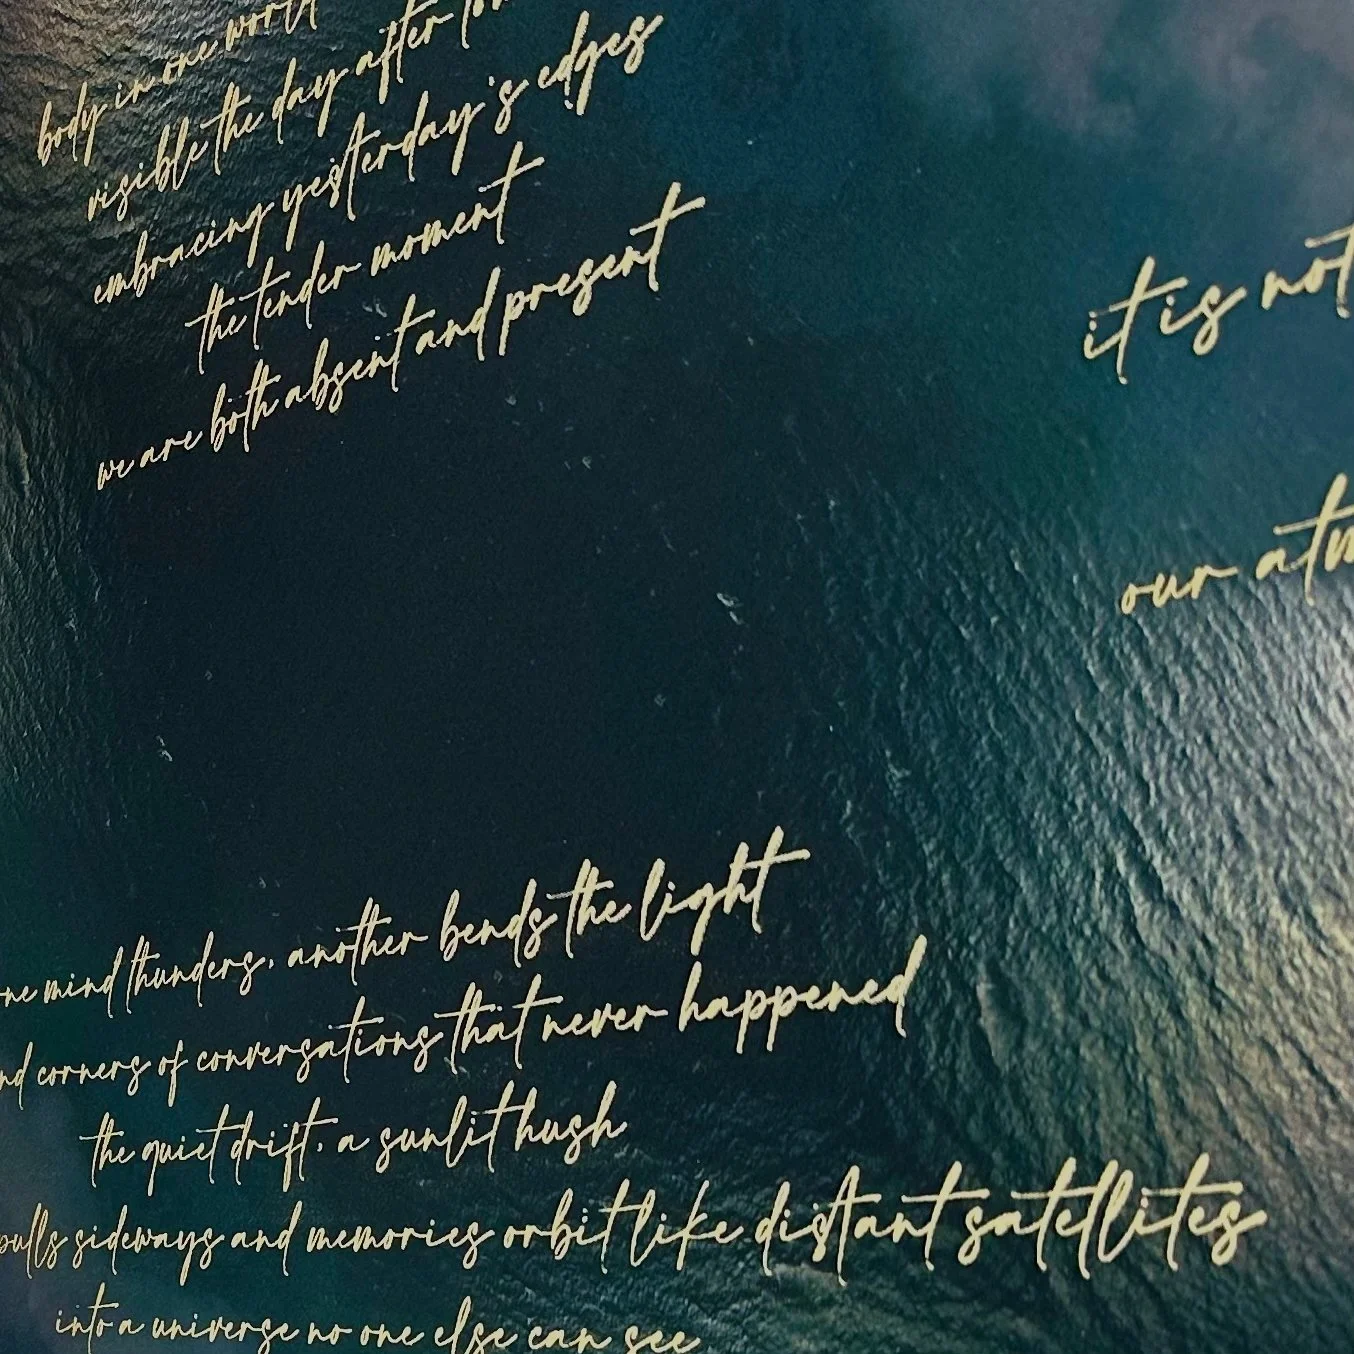 body in one world
visible the day after
embracing yesterday's edges
the tender moment
we are both absent and present
it is not
our
mind thunders, another bends the light
corners of conversations that never happened
the quiet drift, a sunlit hush
pulls sideways and memories orbit like distant satellites
into a universe no one else can see